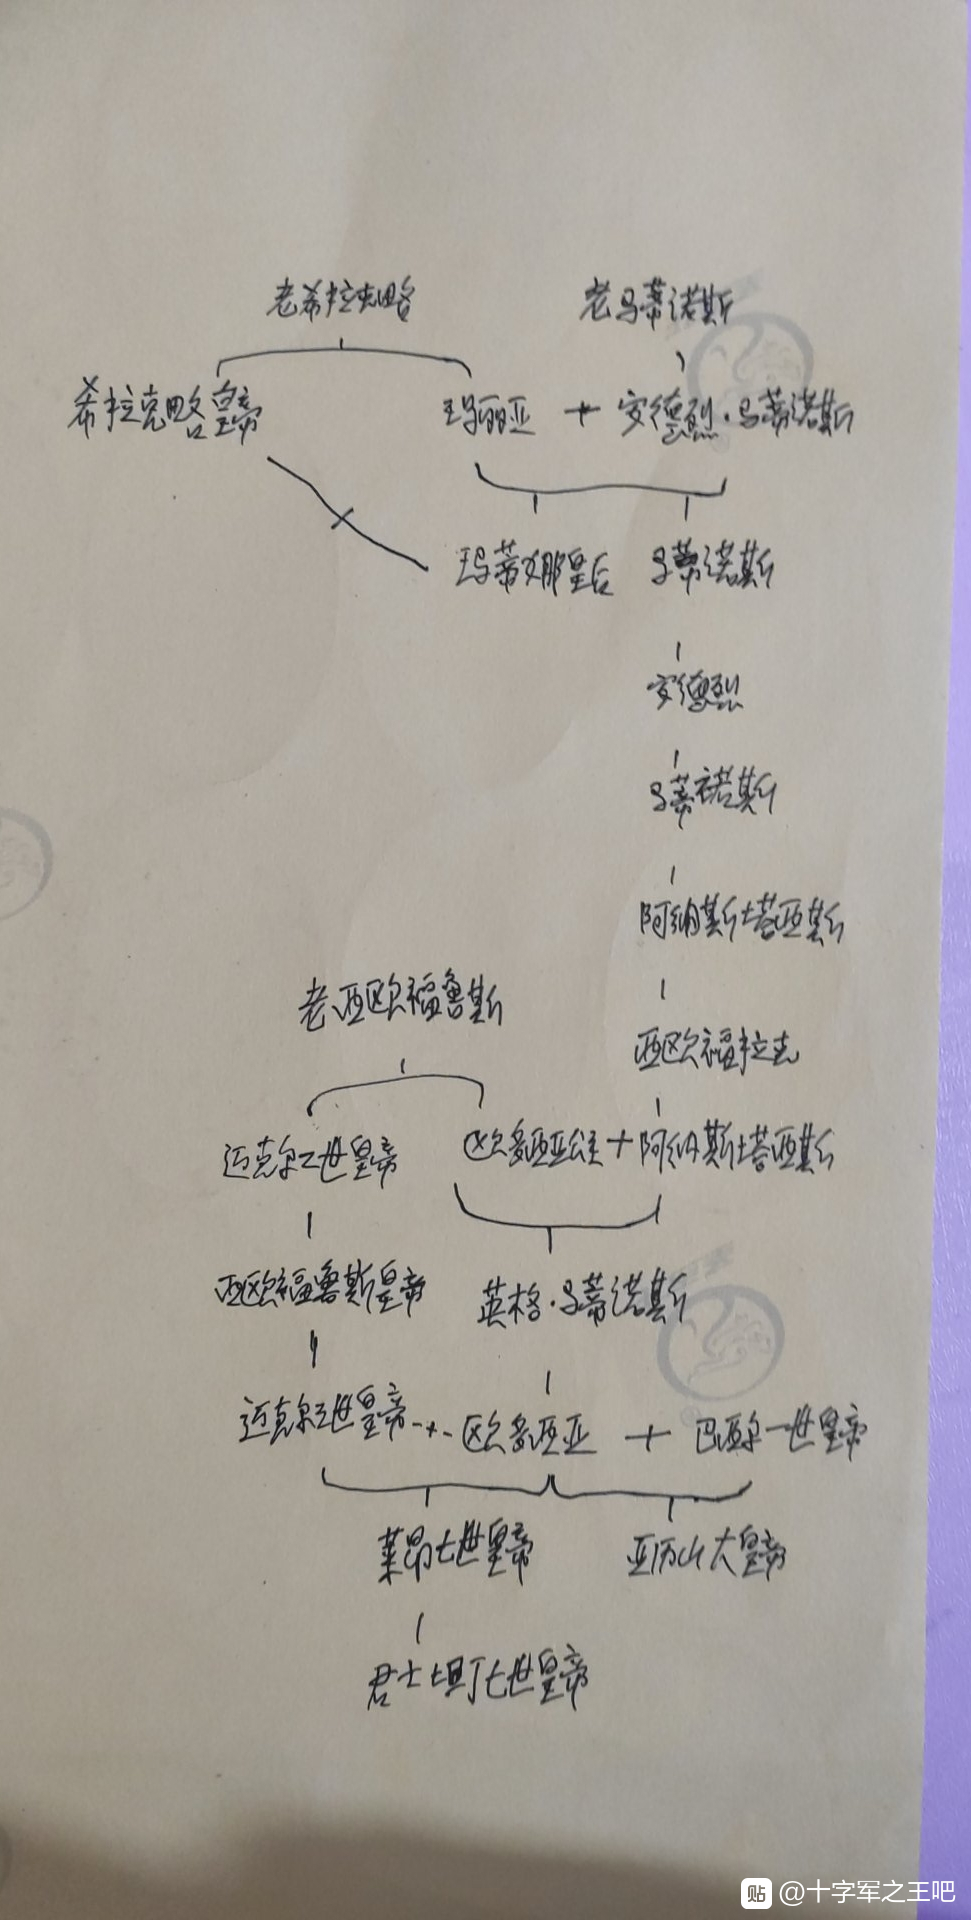 老希拉克略 老马蒂诺斯
希拉克略皇帝 玛丽亚 + 安德烈·马蒂诺斯
玛蒂娜皇后 马蒂诺斯
安德烈
马蒂诺斯
阿纳斯塔亚斯
老亚欧福鲁斯
亚欧福拉志
迈克尔二世皇帝 欧多亚亚公主+阿纳斯塔亚斯
亚欧福鲁斯皇帝 英格·马蒂诺斯
迈克尔三世皇帝 -+- 欧多亚亚 + 巴亚尔一世皇帝
莱昂七世皇帝 亚历山大皇帝
君士坦丁七世皇帝
贴 @十字军之王吧